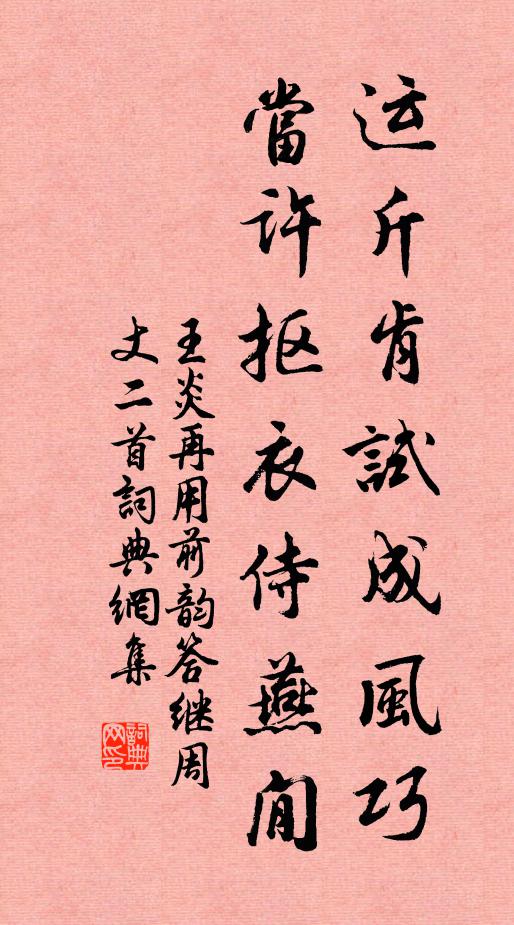 运斤肯試成風巧
當许抠衣侍燕閒
王炎再用前韵答继周
丈二首詞典網集
詞典
网印